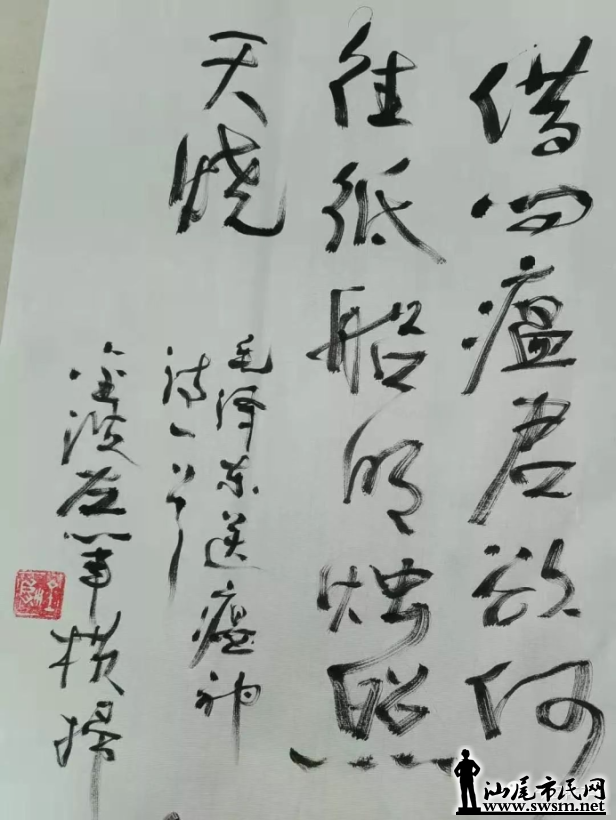 借问瘟君欲何
往纸船明烛照
天烧
毛泽东送瘟神
诗一首
金波左筆横掃
汕尾市民网
www.swsm.net